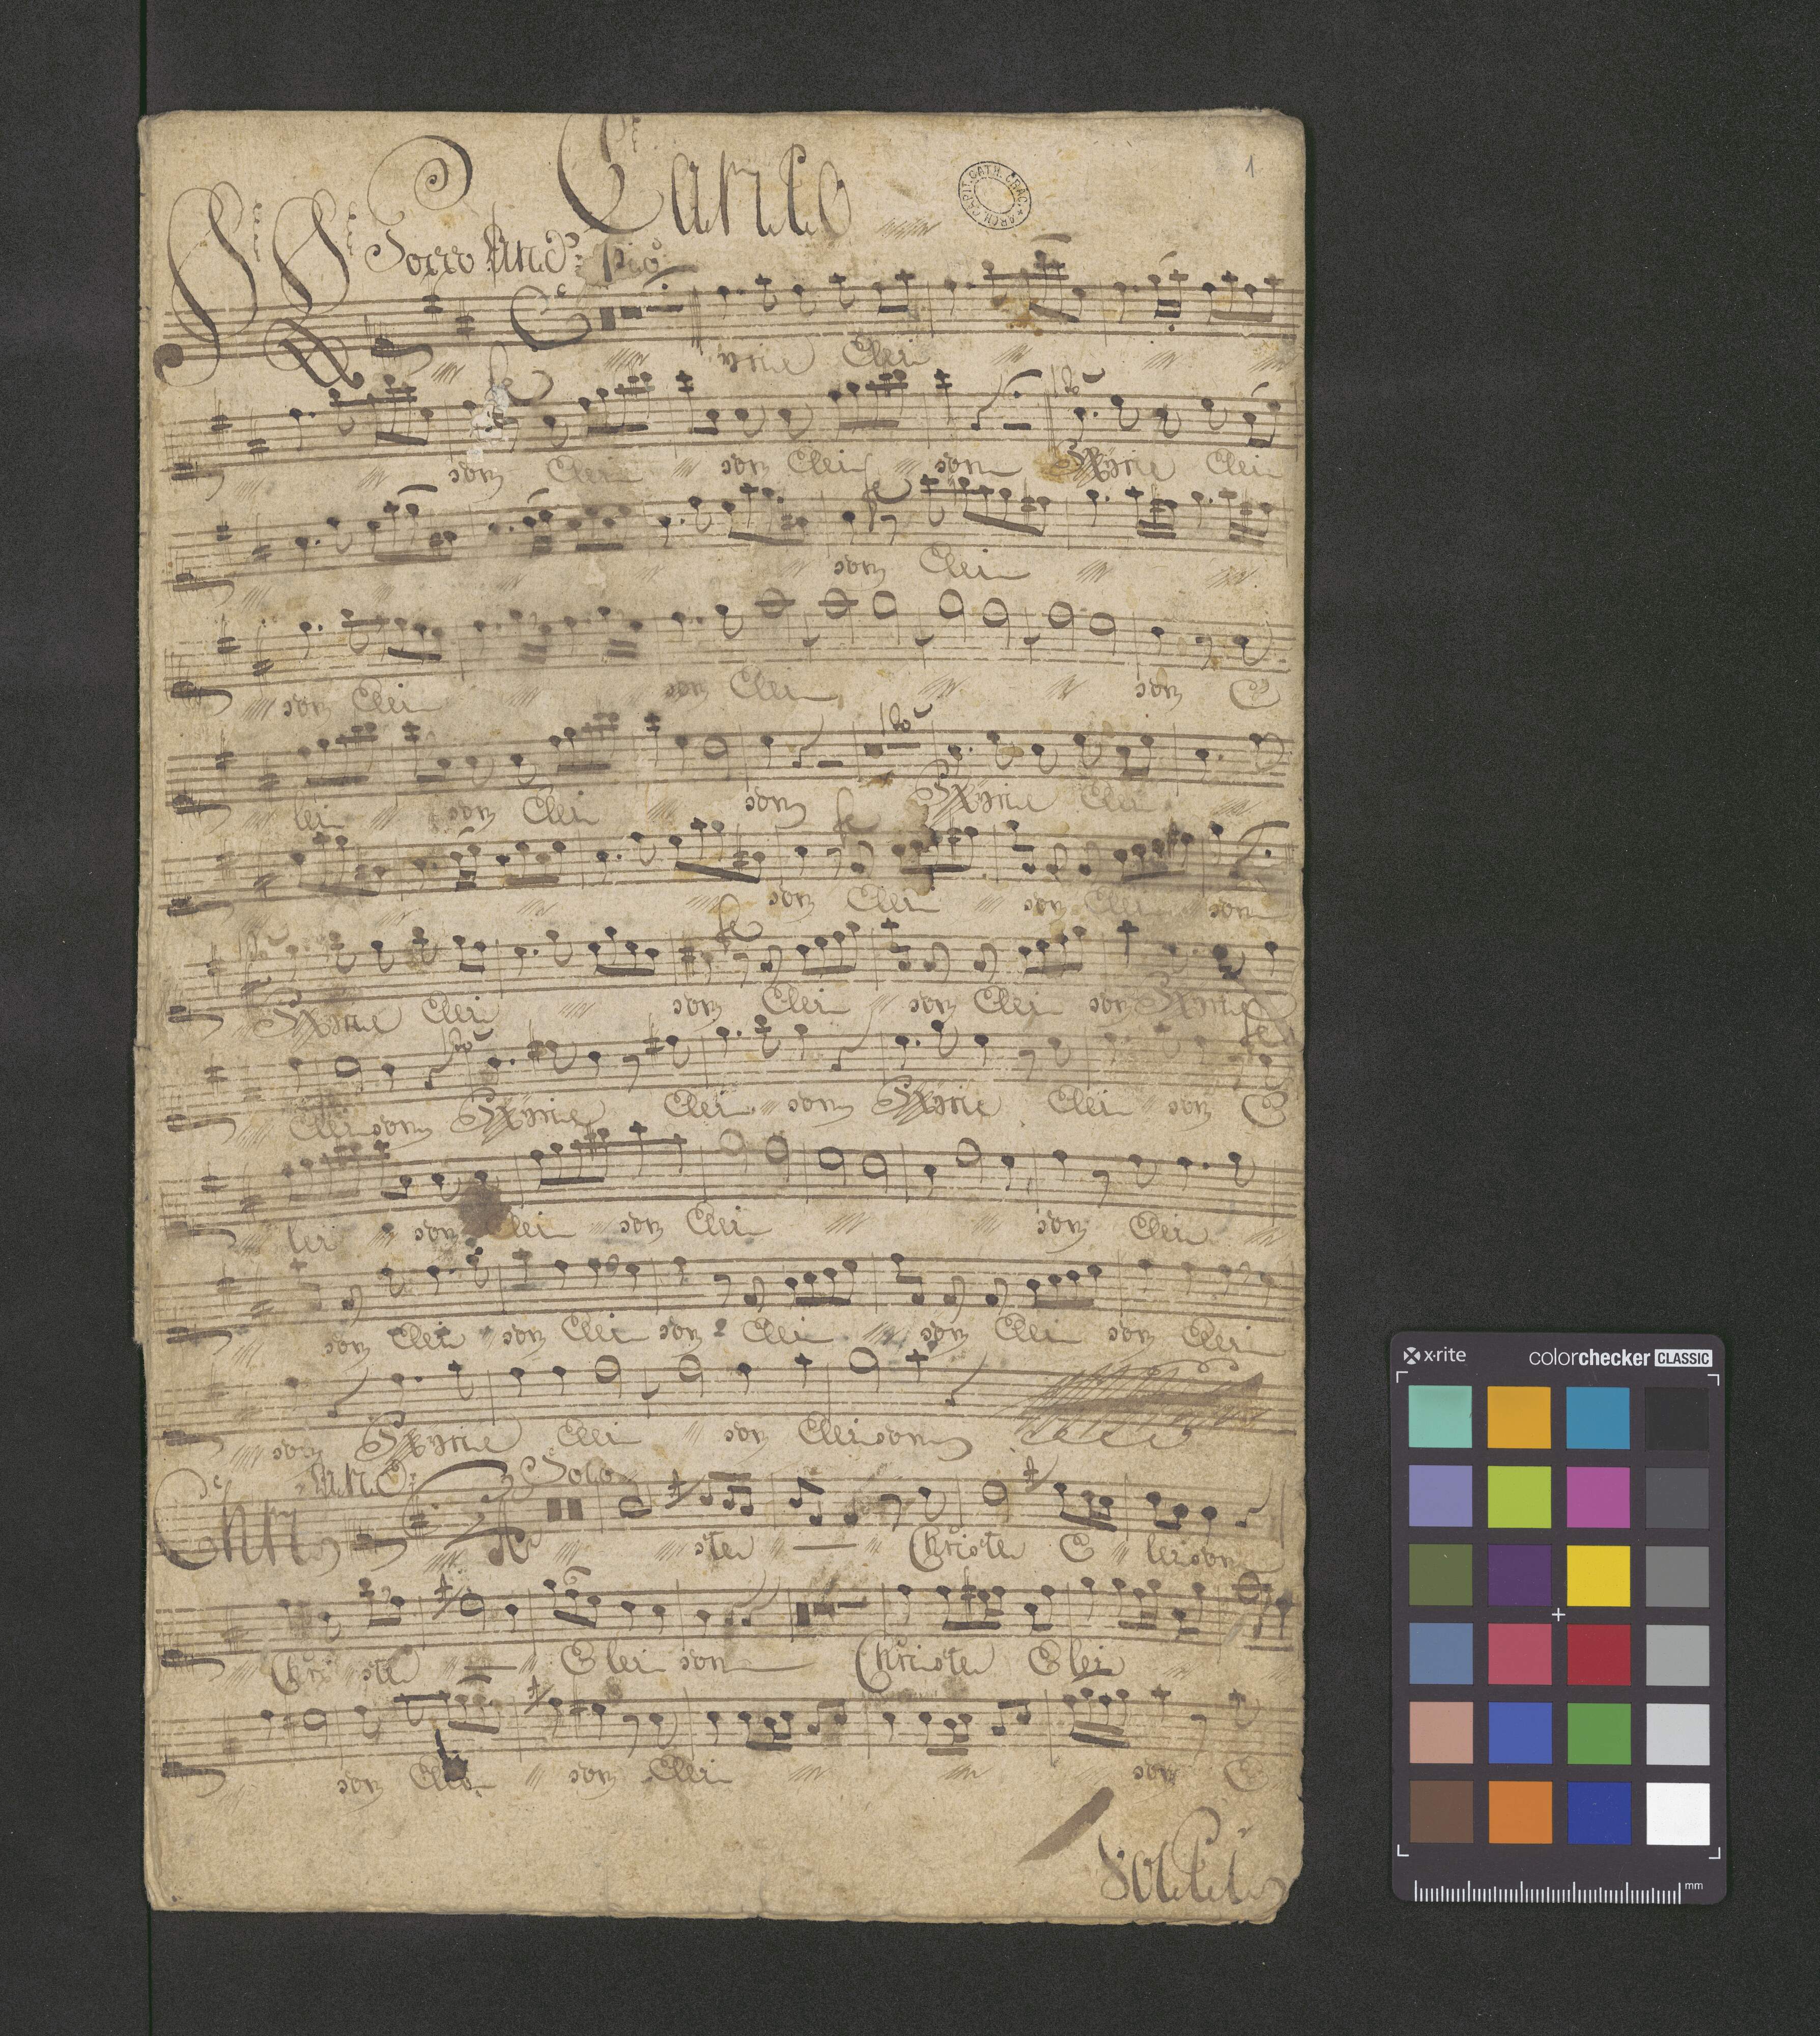 Canto
1
ARCH. CAPIT. CATH. CRAC.
And:
yrie Elei
son Elei son Elei son Kyrie Elei
son Elei
son Elei son Elei son E
lei son Elei son Kyrie Elei
son Elei son Elei son
Kyrie Elei son Elei son Elei son Kyrie
Eleison Kyrie Elei son Kyrie Elei son E
lei son Elei son Elei son Elei
son Elei son Elei son Elei son Elei son Elei
son Kyrie Elei son Eleison
And: Solo
ste Christe E leison
Chri ste Elei son Christe Elei
son Elei son Elei son E
x·rite colorchecker CLASSIC
mm